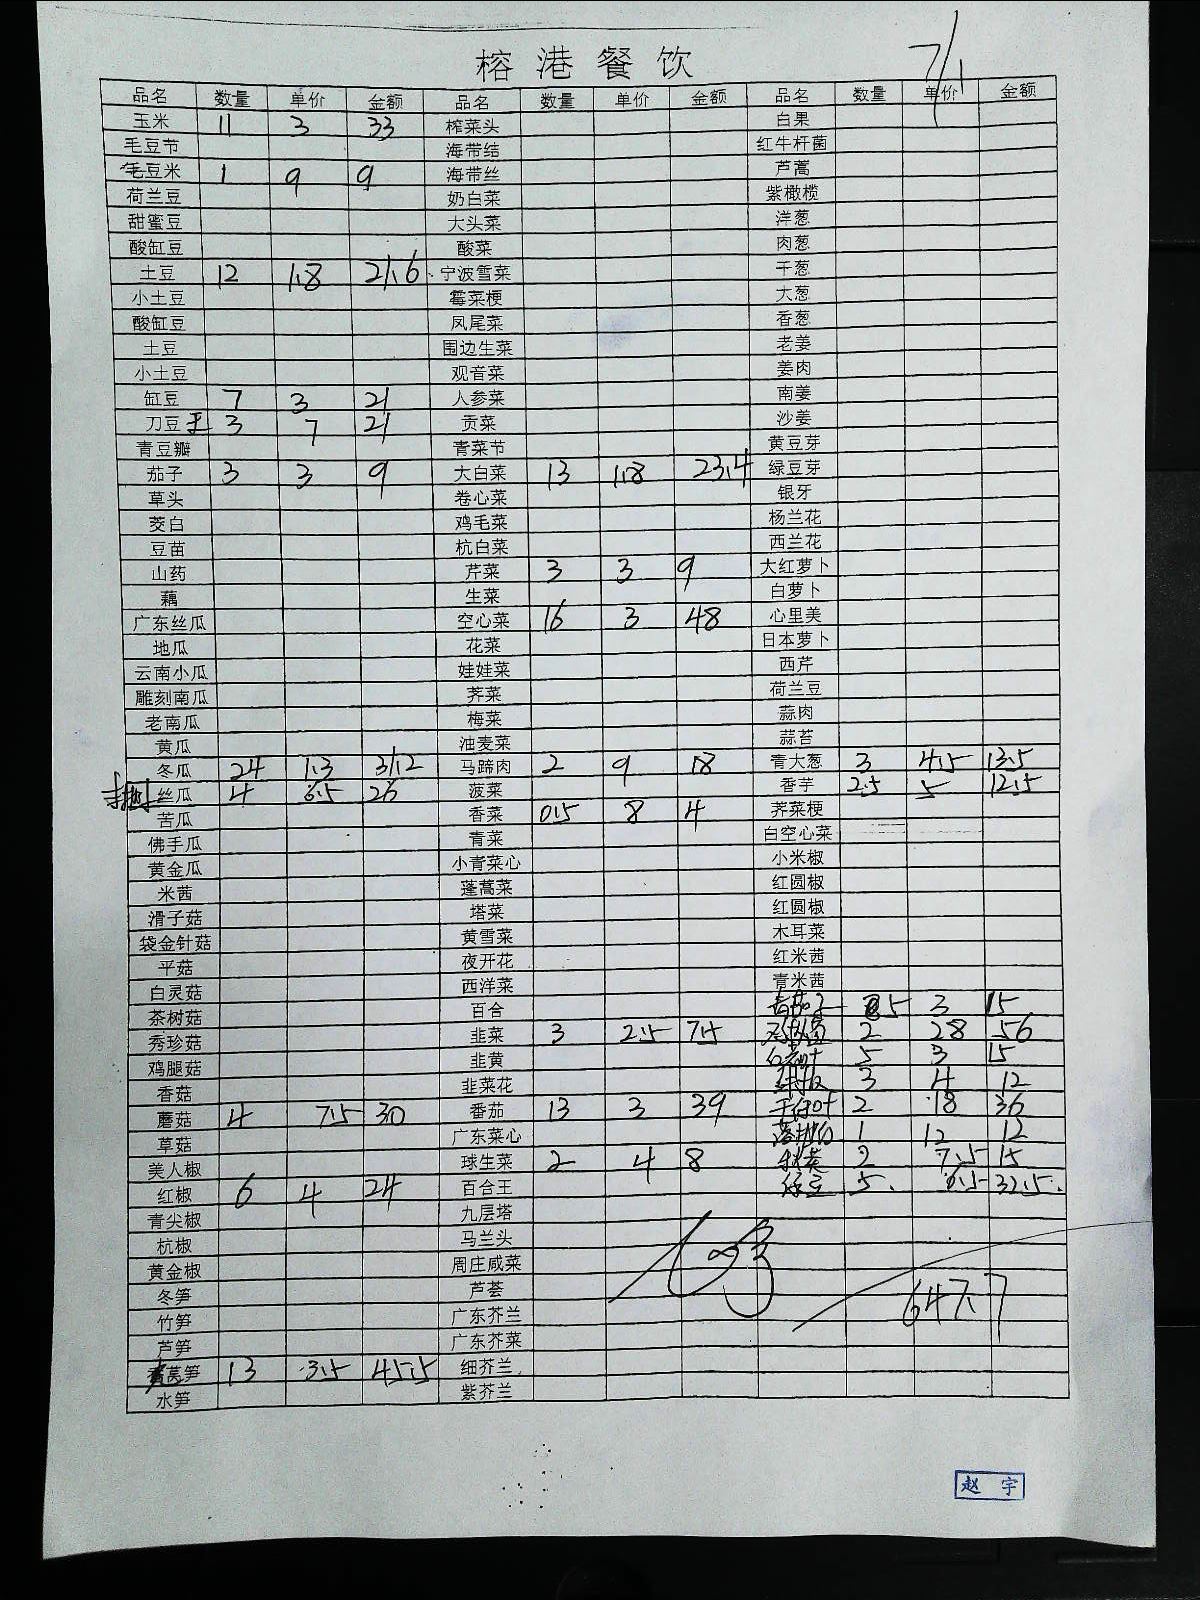 榕港餐饮
7/1
品名 数量 单价 金额 品名 数量 单价 金额 品名 数量 单价 金额
玉米 11 3 33 榨菜头 白果
毛豆节 海带结 红牛杆菌
毛豆米 1 9 9 海带丝 芦蒿
荷兰豆 奶白菜 紫橄榄
甜蜜豆 大头菜 洋葱
酸缸豆 酸菜 肉葱
土豆 12 1.8 21.6 宁波雪菜 干葱
小土豆 霉菜梗 大葱
酸缸豆 凤尾菜 香葱
土豆 围边生菜 老姜
小土豆 观音菜 姜肉
缸豆 7 3 21 人参菜 南姜
刀豆王 3 7 21 贡菜 沙姜
青豆瓣 青菜节 黄豆芽
茄子 3 3 9 大白菜 13 1.8 23.4 绿豆芽
草头 卷心菜 银牙
茭白 鸡毛菜 杨兰花
豆苗 杭白菜 西兰花
山药 芹菜 3 3 9 大红萝卜
藕 生菜 白萝卜
广东丝瓜 空心菜 16 3 48 心里美
地瓜 花菜 日本萝卜
云南小瓜 娃娃菜 西芹
雕刻南瓜 荠菜 荷兰豆
老南瓜 梅菜 蒜肉
黄瓜 油麦菜 蒜苔
冬瓜 24 1.3 31.2 马蹄肉 2 9 18 青大葱 3 4.5 13.5
丝瓜 4 6.5 26 菠菜 香芋 2.5 5 12.5
苦瓜 香菜 0.5 8 4 荠菜梗
佛手瓜 青菜 白空心菜
黄金瓜 小青菜心 小米椒
米茜 蓬蒿菜 红圆椒
滑子菇 塔菜 红圆椒
袋金针菇 黄雪菜 木耳菜
平菇 夜开花 红米茜
白灵菇 西洋菜 青米茜
茶树菇 百合 青茄子 5 3 15
秀珍菇 韭菜 3 2.5 7.5 2 28 56
鸡腿菇 韭黄 5 3 15
香菇 韭菜花 3 4 12
蘑菇 4 7.5 30 番茄 13 3 39 2 18 36
草菇 广东菜心 1 12 12
美人椒 球生菜 2 4 8 2 7.5 15
红椒 6 4 24 百合王 绿豆 5 6.5 32.5
青尖椒 九层塔
杭椒 马兰头
黄金椒 周庄咸菜
冬笋 芦荟
竹笋 广东芥兰 647.7
芦笋 广东芥菜
莴笋 13 3.5 45.5 细芥兰
水笋 紫芥兰
赵宇